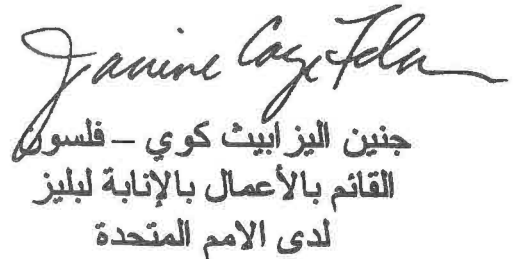 Janine
جنين اليزابيث كوي – فلسون
القائم بالأعمال بالإنابة لبليز
لدى الامم المتحدة